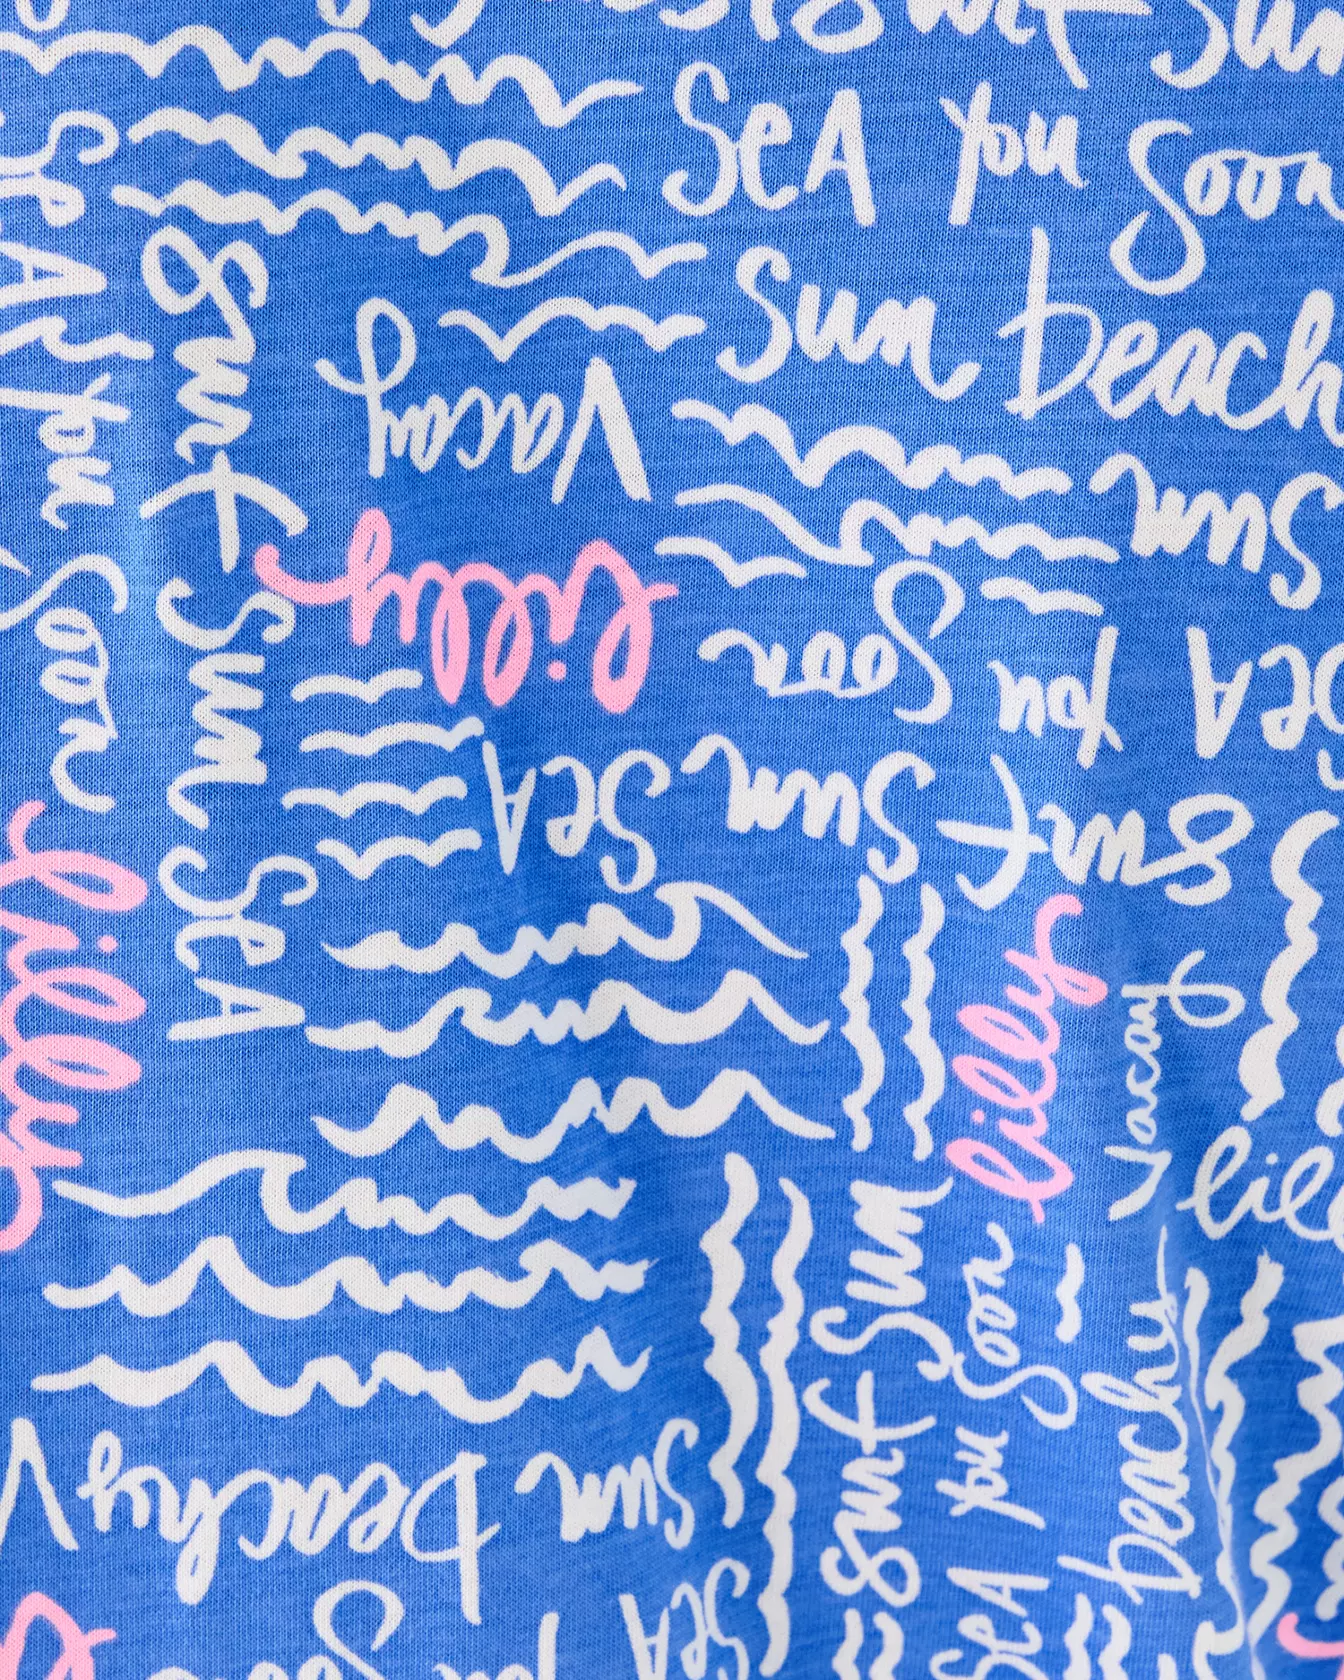 Surf Sun
SeA you Soon
Sun beach
SeA you Soon
Surf Sun SeA
Vacay
lilly
Sun
SeA you Soon
Surf Sun SeA
lilly
lilly
Vacay
lil
Surf Sun
SeA you Soon
beachy
Sun beachy V
SeA